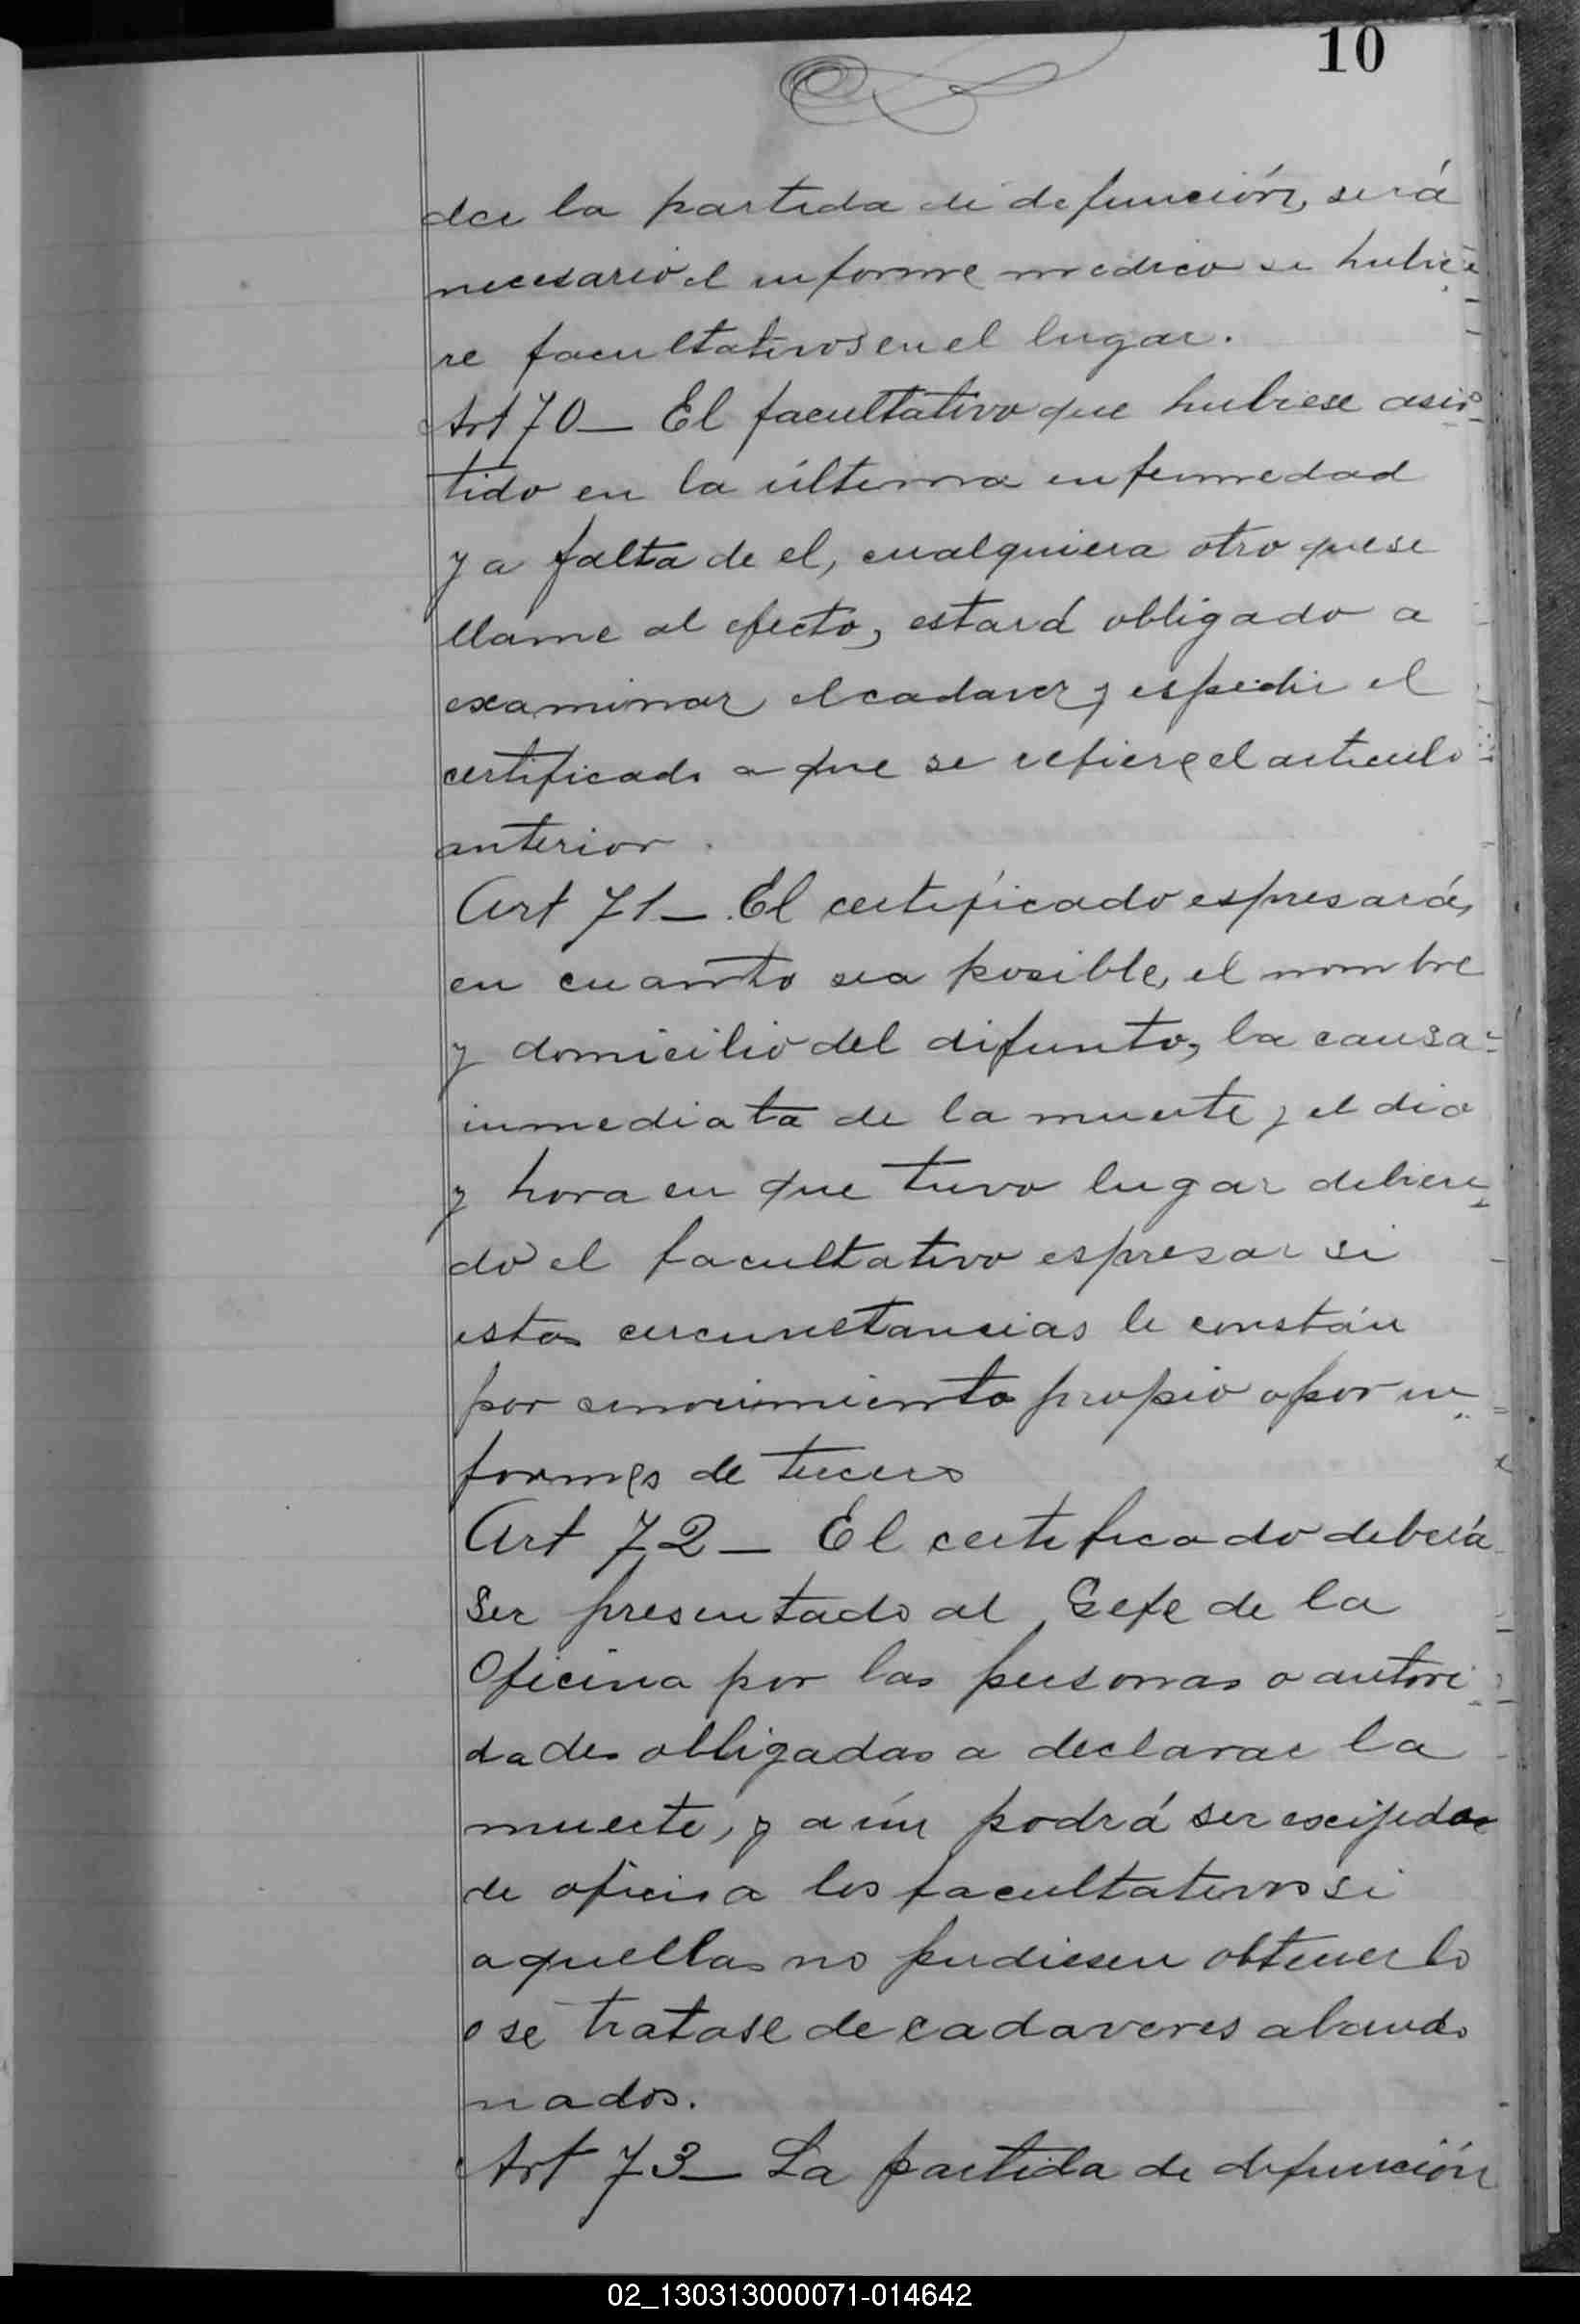 10
der la partida de defunción, será
necesario el informe medico si hubie
re facultativos en el lugar.
Art 70 — El facultativo que hubiese asis-
tido en la última enfermedad
y a falta de el, cualquiera otro que se
llame al efecto, estará obligado a
examinar el cadaver y espedir el
certificado a que se refiere el articulo
anterior.
Art 71 — El certificado espresará,
en cuanto sea posible, el nombre
y domicilio del difunto, la causa
inmediata de la muerte y el dia
y hora en que tuvo lugar debien-
do el facultativo espresar si
estas circunstancias le constán
por conocimiento propio o por in-
formes de tercero
Art 72 — El certificado deberá
ser presentado al Gefe de la
Oficina por las personas o autori-
dades obligadas a declarar la
muerte, y aún podrá ser escijido
de oficio a los facultativos si
aquellas no pudiesen obtenerlo
o se tratase de cadaveres abando
nados.
Art 73 — La partida de defunción
02_130313000071-014642